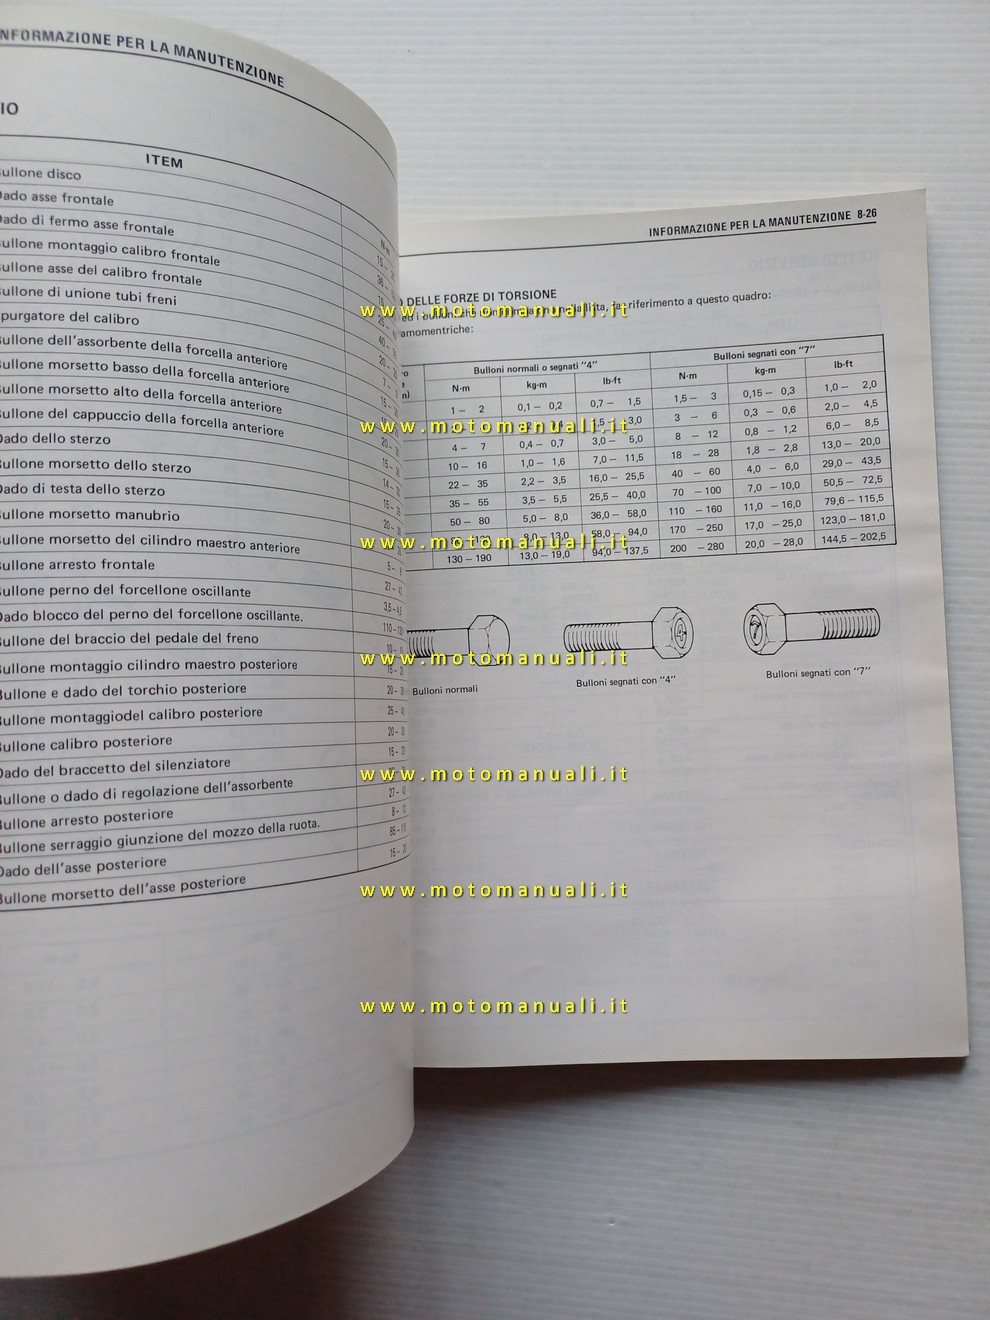 INFORMAZIONE PER LA MANUTENZIONE
IO
ITEM
N·m
Bullone disco
Dado asse frontale
Dado di fermo asse frontale
Bullone montaggio calibro frontale
Bullone asse del calibro frontale
Bullone di unione tubi freni
purgatore del calibro
Bullone dell'assorbente della forcella anteriore
Bullone morsetto basso della forcella anteriore
Bullone morsetto alto della forcella anteriore
Bullone del cappuccio della forcella anteriore
Dado dello sterzo
Bullone morsetto dello sterzo
Dado di testa dello sterzo
Bullone morsetto manubrio
Bullone morsetto del cilindro maestro anteriore
Bullone arresto frontale
Bullone perno del forcellone oscillante
Dado blocco del perno del forcellone oscillante.
Bullone del braccio del pedale del freno
Bullone montaggio cilindro maestro posteriore
Bullone e dado del torchio posteriore
Bullone montaggiodel calibro posteriore
Bullone calibro posteriore
Dado del braccetto del silenziatore
Bullone o dado di regolazione dell'assorbente
Bullone arresto posteriore
Bullone serraggio giunzione del mozzo della ruota.
Dado dell'asse posteriore
Bullone morsetto dell'asse posteriore
INFORMAZIONE PER LA MANUTENZIONE 8-26
O DELLE FORZE DI TORSIONE
riferimento a questo quadro:
amomentriche:
Bulloni normali o segnati "4" Bulloni segnati con "7"
N·m kg-m lb-ft N·m kg-m lb-ft
1 — 2 0,1 — 0,2 0,7 — 1,5 1,5 — 3 0,15 — 0,3 1,0 — 2,0
3,0 3 — 6 0,3 — 0,6 2,0 — 4,5
4 — 7 0,4 — 0,7 3,0 — 5,0 8 — 12 0,8 — 1,2 6,0 — 8,5
10 — 16 1,0 — 1,6 7,0 — 11,5 18 — 28 1,8 — 2,8 13,0 — 20,0
22 — 35 2,2 — 3,5 16,0 — 25,5 40 — 60 4,0 — 6,0 29,0 — 43,5
35 — 55 3,5 — 5,5 25,5 — 40,0 70 — 100 7,0 — 10,0 50,5 — 72,5
50 — 80 5,0 — 8,0 36,0 — 58,0 110 — 160 11,0 — 16,0 79,6 — 115,5
58,0 — 94,0 170 — 250 17,0 — 25,0 123,0 — 181,0
130 — 190 13,0 — 19,0 94,0 — 137,5 200 — 280 20,0 — 28,0 144,5 — 202,5
4
7
Bulloni normali
Bulloni segnati con "4"
Bulloni segnati con "7"
www.motomanuali.it
www.motomanuali.it
www.motomanuali.it
www.motomanuali.it
www.motomanuali.it
www.motomanuali.it
www.motomanuali.it